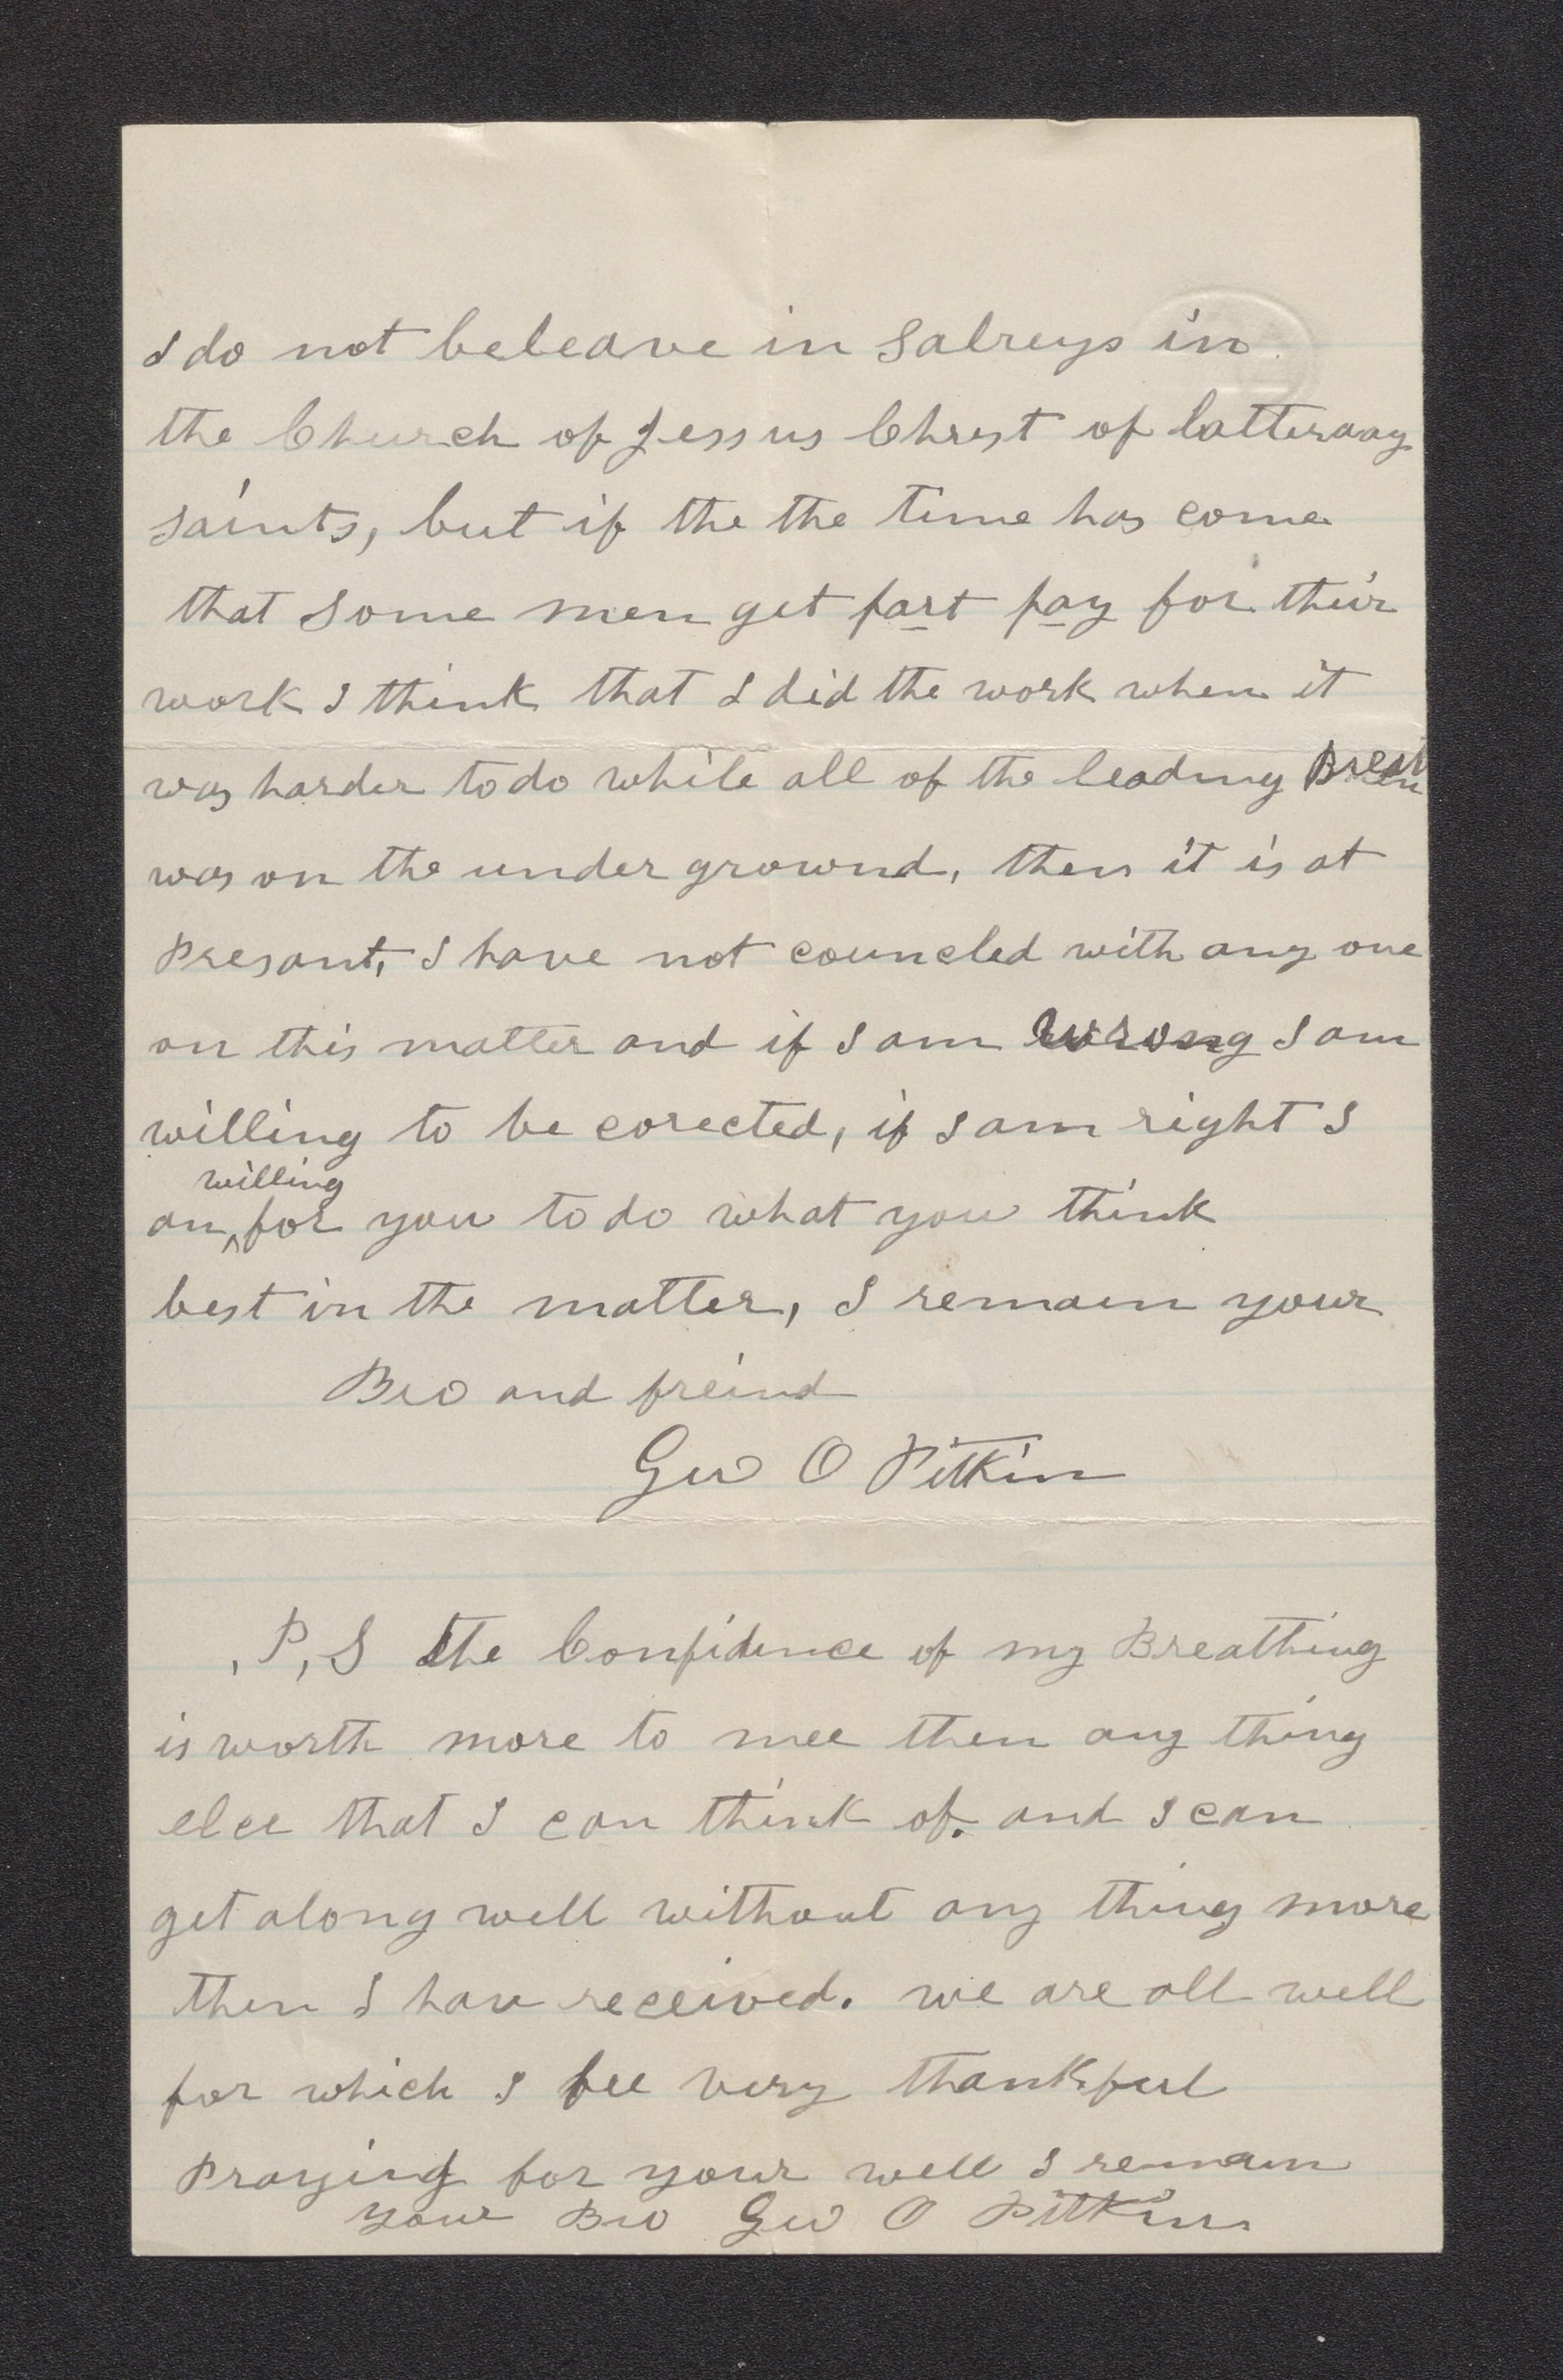 I do not beleave in salreys in
the Church of Jessus Christ of latteraay
saints, but if the the time has come
that some men get part pay for their
work I think that I did the work when it
was harder to do while all of the leading
was on the under grownd, then it is at
Presant, I have not councled with any one
on this matter and if I am wrong I am
willing to be corected, if I am right I
willing
am ^ for you to do what you think
best in the matter, I remain your
Bro and freind
Geo O Pitkin
, P, S the Confidence of my Breathing
is worth more to mee then any thing
elce that I can think of. and I can
get along well without any thing more
then I have received. we are all well
for which I fee very thankful
Praying for your well I remain
your Bro Geo O Pitkin